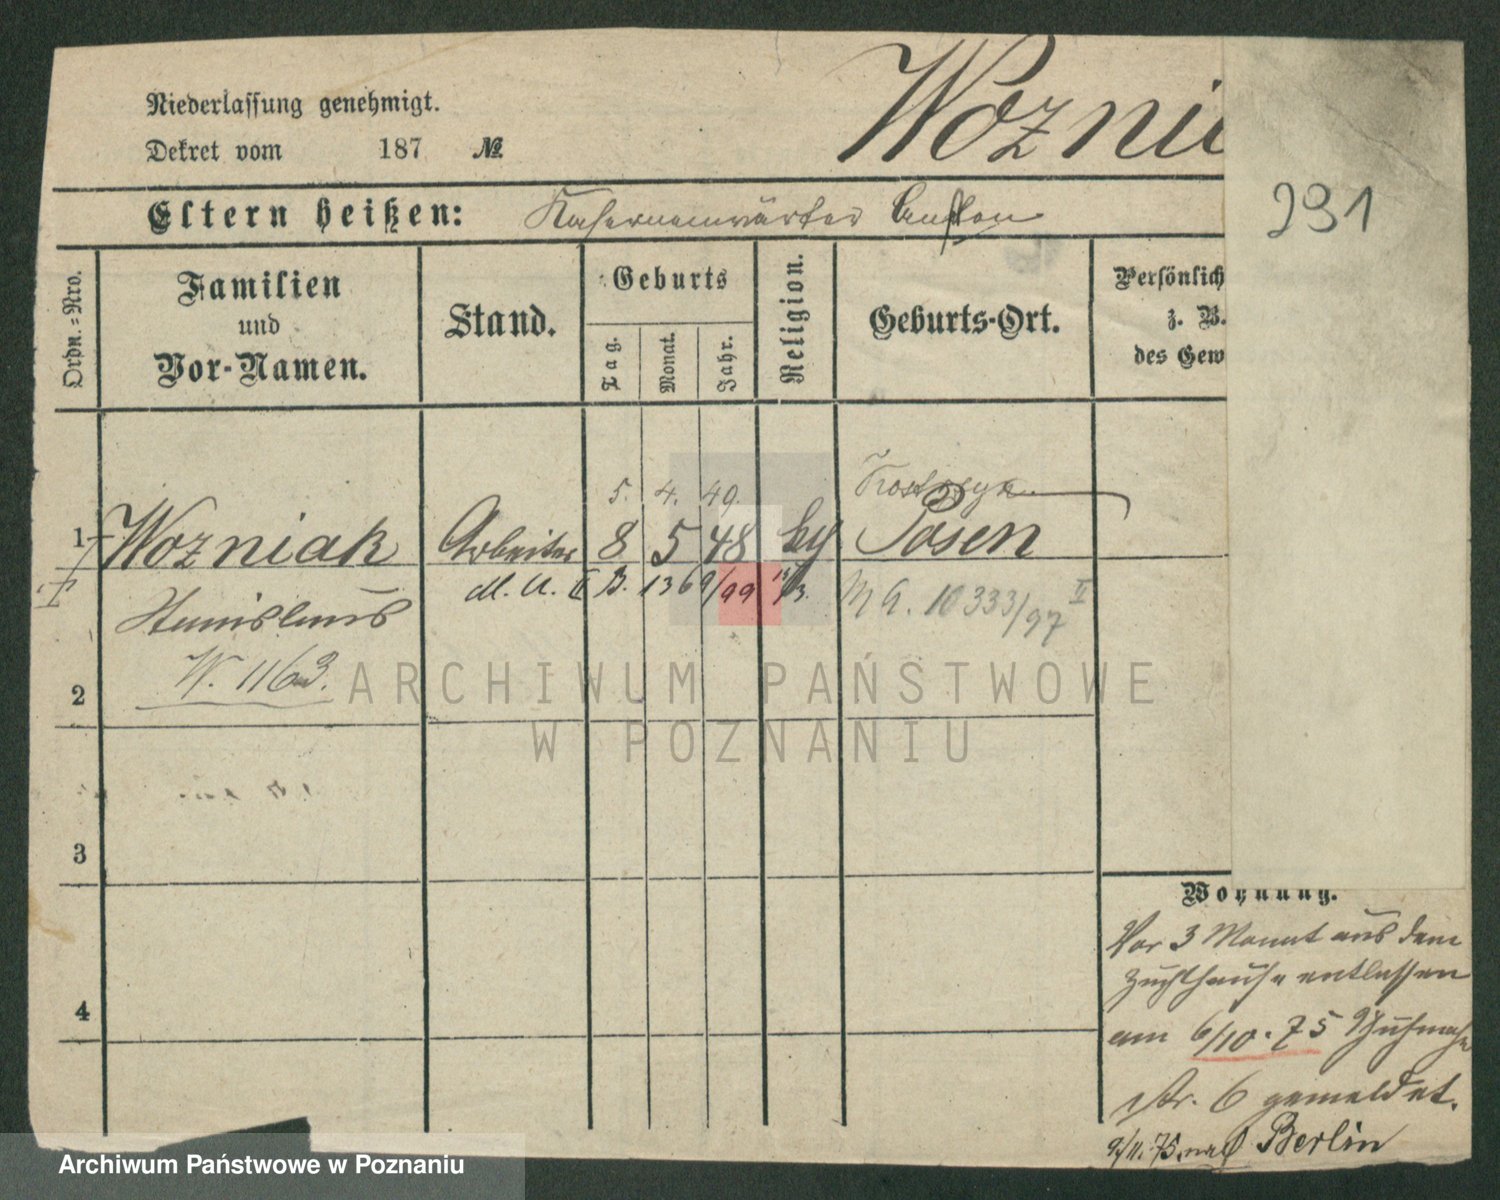 Niederlassung genehmigt.
Dekret vom 187 №
Wozni
Eltern heißen: Kasernenwärter
291
Ordn.=Nro.
Familien
und
Vor-Namen.
Stand.
Geburts
Tag.
Monat.
Jahr.
Religion.
Geburts-Ort.
Persönlich
z. B.
des Gew
5. 4. 49.
1 Wozniak Arbeiter 8 5 48 Posen
M. A. II B. 1369/99 M A. 10333/97 II
Stanislaus
W. 1163.
2
3
4
Wohnung.
Vor 3 Monat aus dem
Zuchthause entlassen
am 6/10. 75
Str. 6 gemeldet.
9/11. 75. nach Berlin
ARCHIWUM PAŃSTWOWE
W POZNANIU
Archiwum Państwowe w Poznaniu